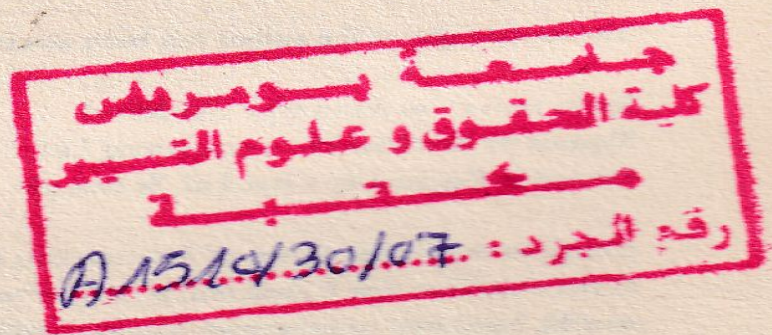 جامعة بومرداس
كلية الحقوق و علوم التسيير
مكتبة
رقم الجرد : A1510/30/07